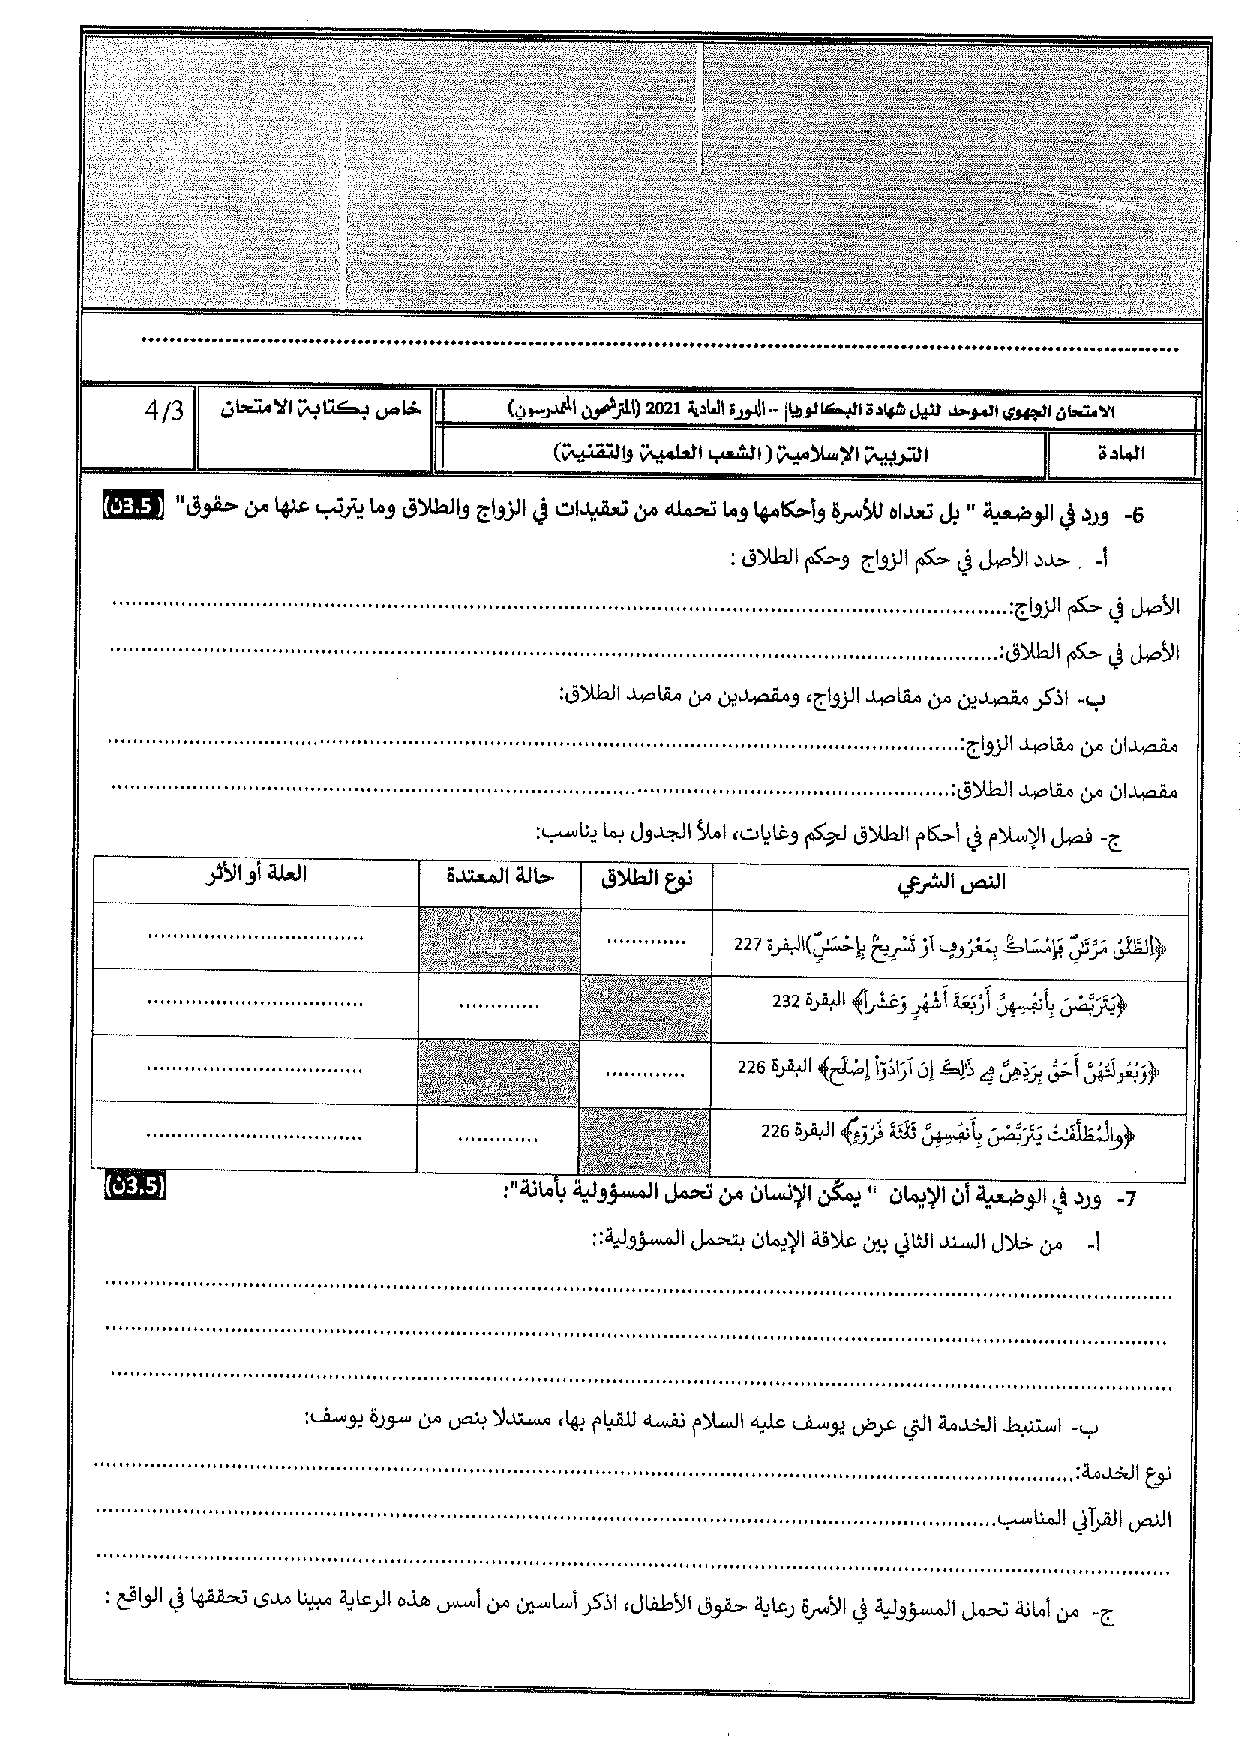 الامتحان الجهوي الموحد لنيل شهادة البكالوريا – الدورة العادية 2021 (المترشحون الممدرسون)
خاص بكتابة الامتحان
4/3
المادة
التربية الإسلامية (الشعب العلمية والتقنية)
6- ورد في الوضعية " بل تعداه للأسرة وأحكامها وما تحمله من تعقيدات في الزواج والطلاق وما يترتب عنها من حقوق" (3.5ن)
أ- . حدد الأصل في حكم الزواج وحكم الطلاق :
الأصل في حكم الزواج:
الأصل في حكم الطلاق:
ب- اذكر مقصدين من مقاصد الزواج، ومقصدين من مقاصد الطلاق:
مقصدان من مقاصد الزواج:
مقصدان من مقاصد الطلاق:
ج- فصل الإسلام في أحكام الطلاق لحِكم وغايات، املأ الجدول بما يناسب:
النص الشرعي نوع الطلاق حالة المعتدة العلة أو الأثر
﴿اَلطَّلَٰقُ مَرَّتَٰنِ فَإِمْسَاكُۢ بِمَعْرُوفٍ اَوْ تَسْرِيحُۢ بِإِحْسَٰنٖ﴾البقرة 227
﴿يَتَرَبَّصْنَ بِأَنفُسِهِنَّ أَرْبَعَةَ أَشْهُرٍ وَعَشْراً﴾ البقرة 232
﴿وَبُعُولَتُهُنَّ أَحَقُّ بِرَدِّهِنَّ فِي ذَٰلِكَ إِنَ اَرَادُوٓاْ إِصْلَٰحاً﴾ البقرة 226
﴿وَالْمُطَلَّقَٰتُ يَتَرَبَّصْنَ بِأَنفُسِهِنَّ ثَلَٰثَةَ قُرُوٓءٖ﴾ البقرة 226
7- ورد في الوضعية أن الإيمان " يمكّن الإنسان من تحمل المسؤولية بأمانة": (3.5ن)
أ- من خلال السند الثاني بين علاقة الإيمان بتحمل المسؤولية::
ب- استنبط الخدمة التي عرض يوسف عليه السلام نفسه للقيام بها، مستدلا بنص من سورة يوسف:
نوع الخدمة:
النص القرآني المناسب
ج- من أمانة تحمل المسؤولية في الأسرة رعاية حقوق الأطفال، اذكر أساسين من أسس هذه الرعاية مبينا مدى تحققها في الواقع :